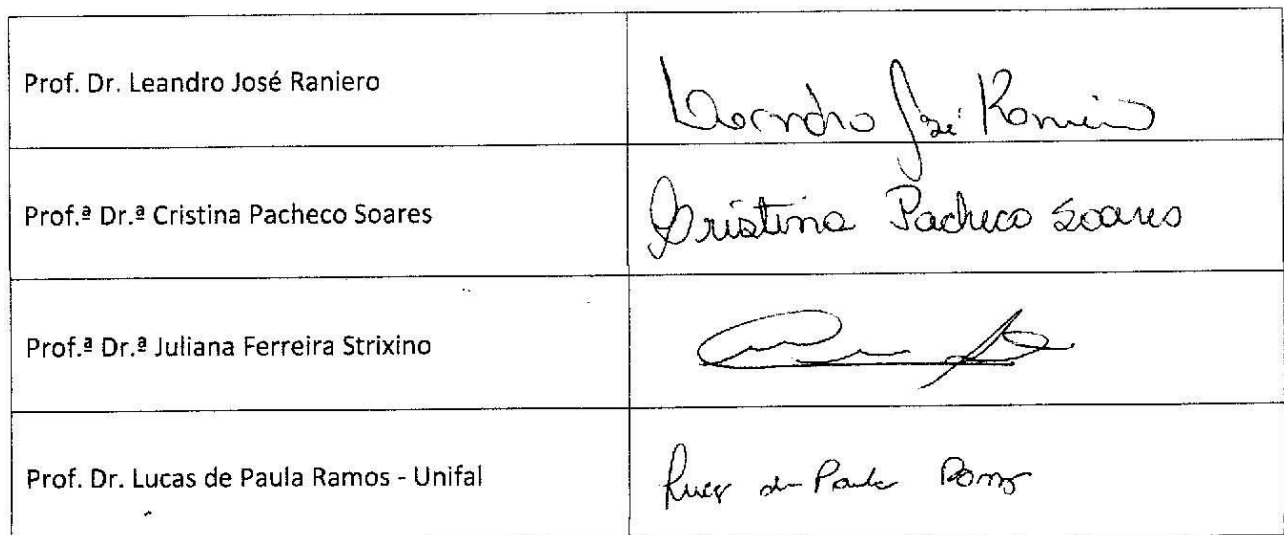 Prof. Dr. Leandro José Raniero
Leandro José Raniero
Prof.ª Dr.ª Cristina Pacheco Soares
Cristina Pacheco Soares
Prof.ª Dr.ª Juliana Ferreira Strixino
Prof. Dr. Lucas de Paula Ramos - Unifal
Lucas de Paula Ramos